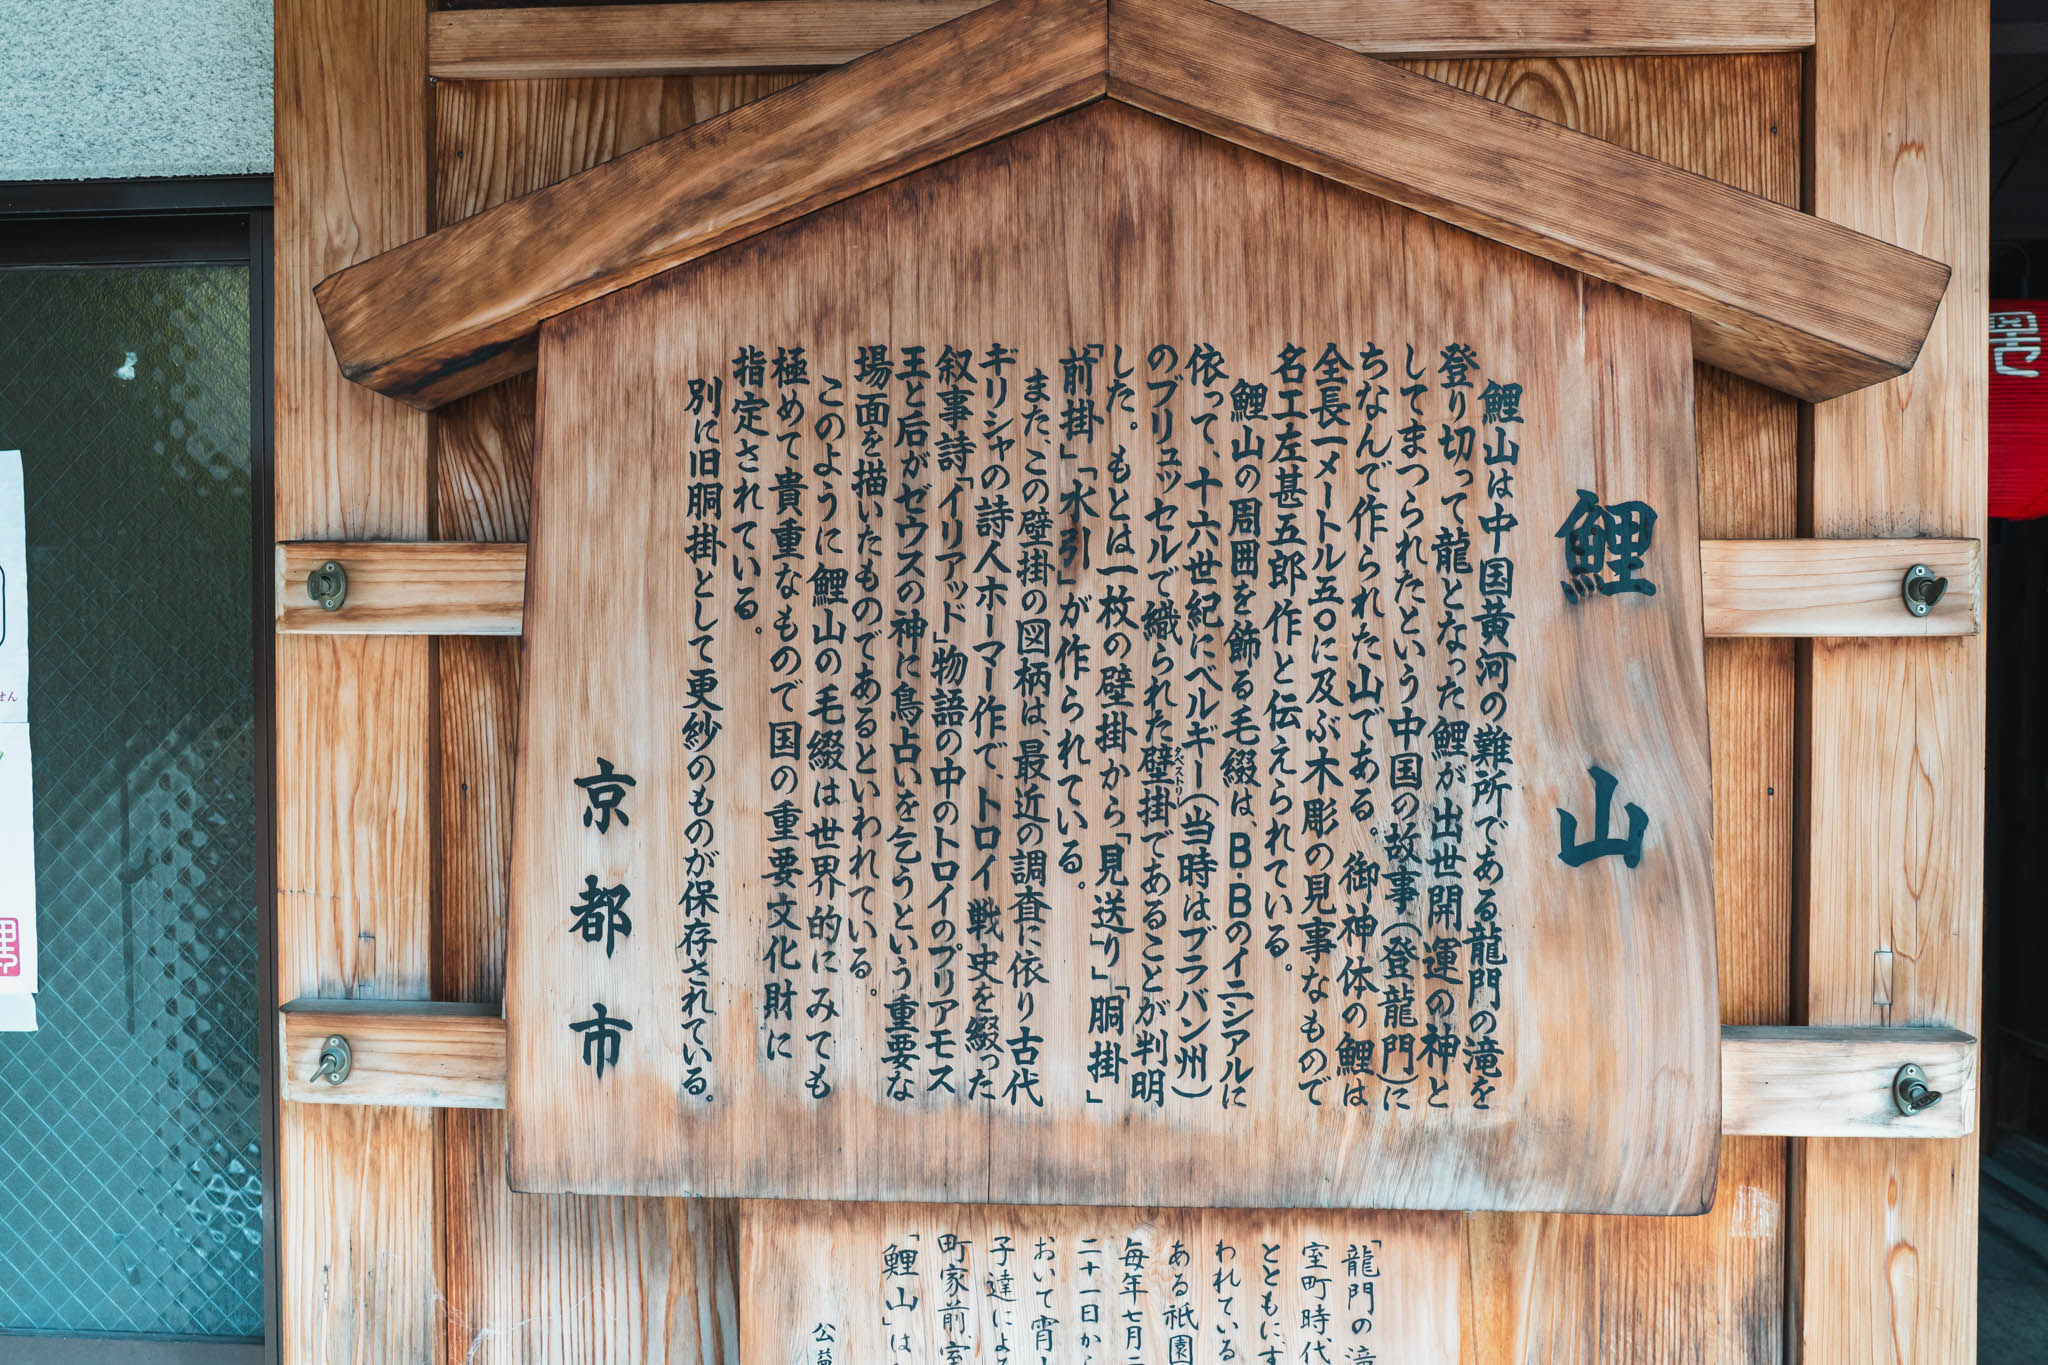 鯉山
鯉山は中国黄河の難所である龍門の滝を
登り切って龍となった鯉が出世開運の神と
してまつられたという中国の故事(登龍門)に
ちなんで作られた山である。御神体の鯉は
全長一メートル五〇に及ぶ木彫の見事なもので
名工左甚五郎作と伝えられている。
鯉山の周囲を飾る毛綴は、B・Bのイニシアルに
依って、十六世紀にベルギー(当時はブラバン州)
のブリュッセルで織られた壁掛であることが判明
タペストリー
した。もとは一枚の壁掛から「見送り」「胴掛」
「前掛」「水引」が作られている。
また、この壁掛の図柄は、最近の調査に依り古代
ギリシャの詩人ホーマー作で、トロイ戦史を綴った
叙事詩「イリアッド」物語の中のトロイのプリアモス
王と后がゼウスの神に鳥占いを乞うという重要な
場面を描いたものであるといわれている。
このように鯉山の毛綴は世界的にみても
極めて貴重なもので国の重要文化財に
指定されている。
別に旧胴掛として更紗のものが保存されている。
京都市
「龍門の滝
室町時代
とともにす
われている
ある祇園
毎年七月二
二十一日から
おいて宵
子達による
町家前、室
「鯉山」は
公益
せん